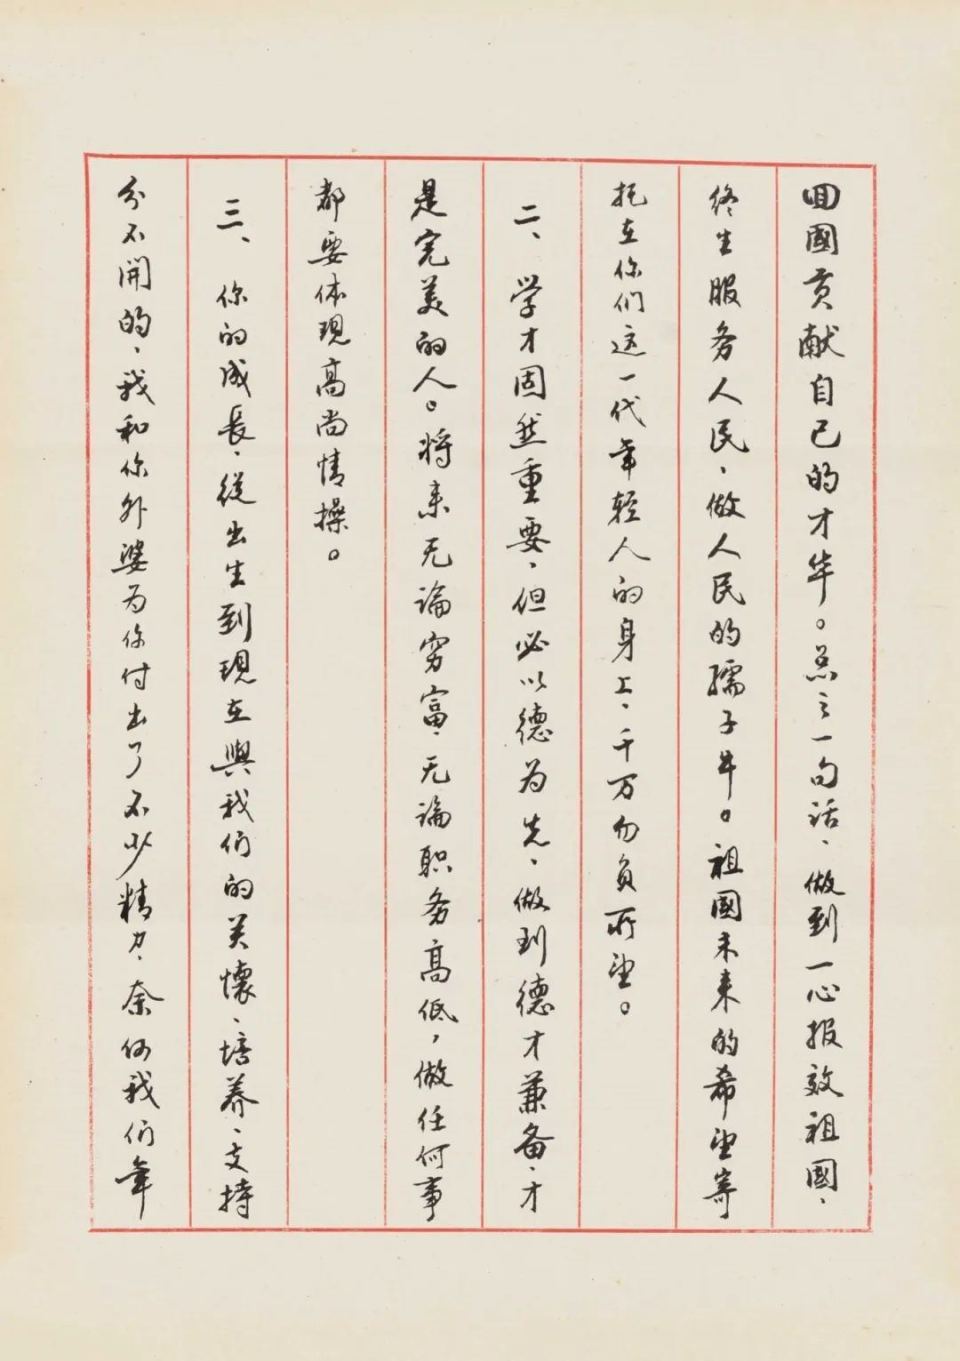 回國贡献自己的才华。总之一句话、做到一心报效祖国、
终生服务人民、做人民的孺子牛。祖國未来的希望寄
托在你们这一代年轻人的身上、千万勿负所望。
二、学才固然重要、但必以德为先、做到德才兼备、才
是完美的人。将来无论穷富、无论职务高低，做任何事
都要体现高尚情操。
三、你的成長、從出生到現在與我们的关懷、培养、支持
分不開的、我和你外婆为你付出了不少精力、奈何我们年